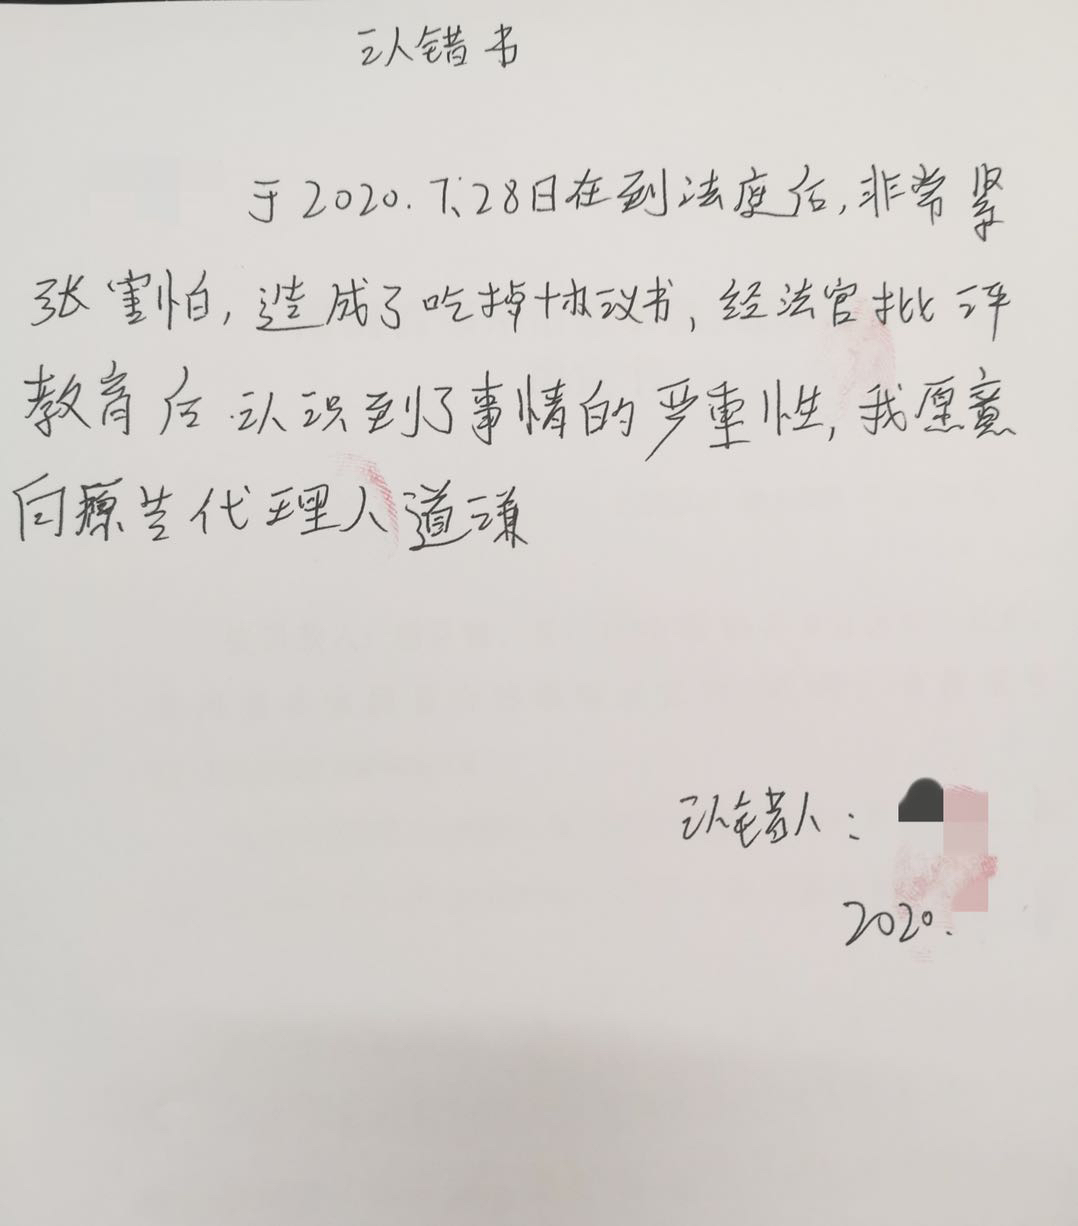 认错书
于2020.7.28日在到法庭后,非常紧
张害怕,造成了吃掉协议书,经法官批评
教育后认识到了事情的严重性,我愿意
向原告代理人道谦
认错人:
2020.